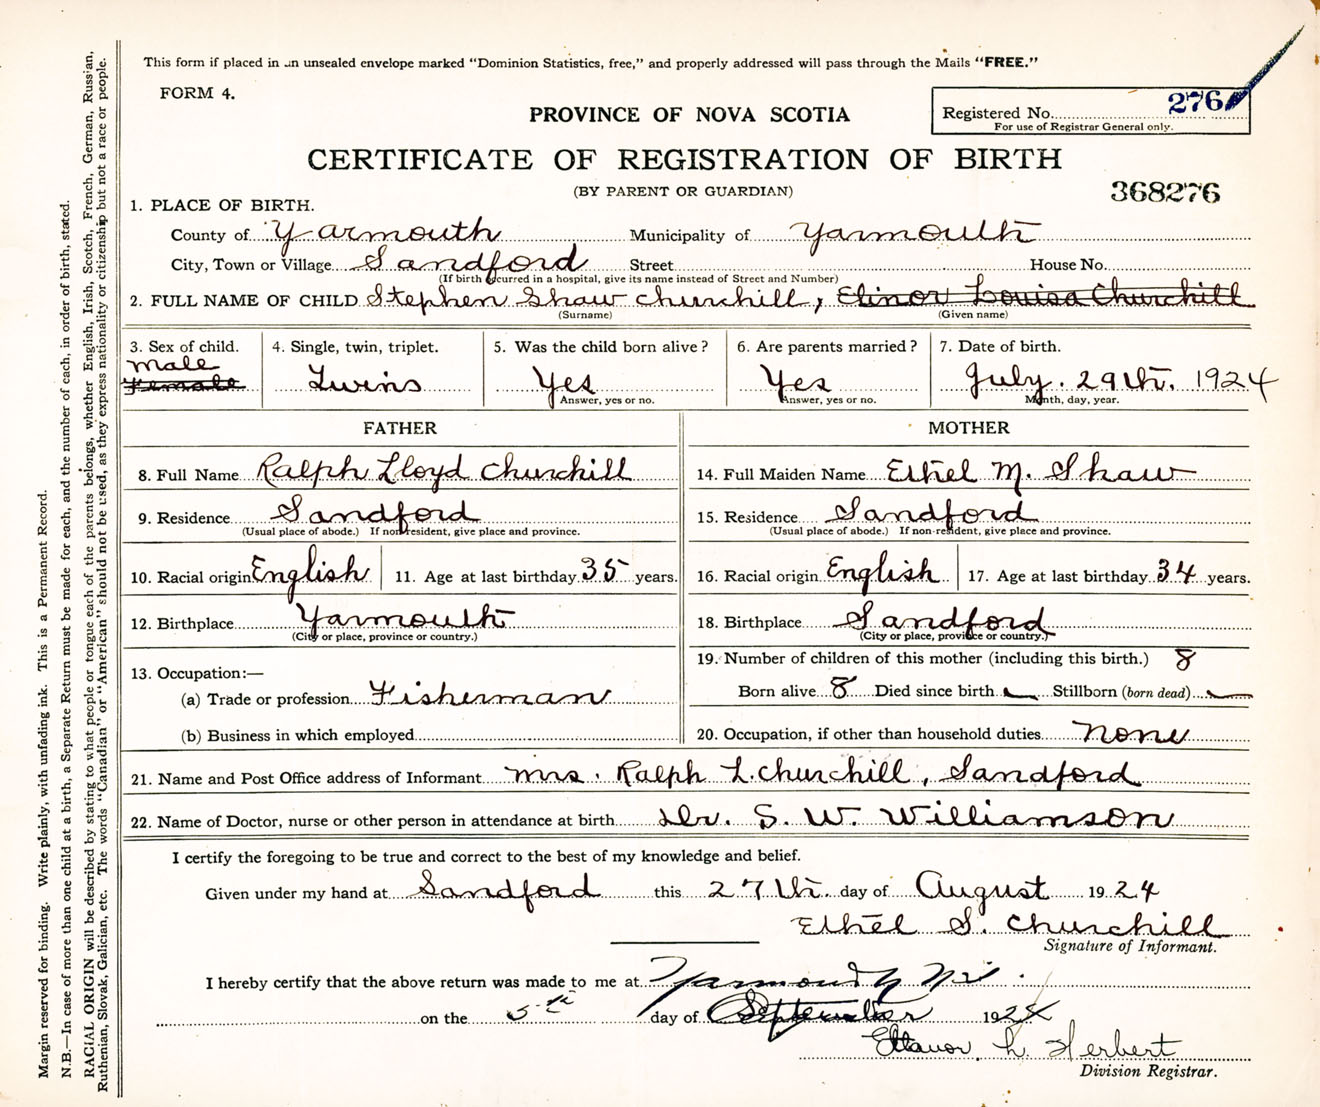 This form if placed in an unsealed envelope marked "Dominion Statistics, free," and properly addressed will pass through the Mails "FREE."
FORM 4.
PROVINCE OF NOVA SCOTIA
Registered No. 276
For use of Registrar General only.
CERTIFICATE OF REGISTRATION OF BIRTH
(BY PARENT OR GUARDIAN)
368276
1. PLACE OF BIRTH.
County of Yarmouth Municipality of Yarmouth
City, Town or Village Sandford Street House No.
(If birth occurred in a hospital, give its name instead of Street and Number)
2. FULL NAME OF CHILD Stephen Shaw Churchill, Elinor Louisa Churchill
(Surname) (Given name)
3. Sex of child. 4. Single, twin, triplet. 5. Was the child born alive? 6. Are parents married? 7. Date of birth.
male
Female Twins Yes Yes July. 29th. 1924
Answer, yes or no. Answer, yes or no. Month, day, year.
FATHER MOTHER
8. Full Name Ralph Lloyd Churchill 14. Full Maiden Name Ethel M. Shaw
9. Residence Sandford 15. Residence Sandford
(Usual place of abode.) If non-resident, give place and province. (Usual place of abode.) If non-resident, give place and province.
10. Racial origin English 11. Age at last birthday 35 years. 16. Racial origin English 17. Age at last birthday 34 years.
12. Birthplace Yarmouth 18. Birthplace Sandford
(City or place, province or country.) (City or place, province or country.)
19. Number of children of this mother (including this birth.) 8
13. Occupation:—
(a) Trade or profession Fisherman Born alive 8 Died since birth Stillborn (born dead)
(b) Business in which employed 20. Occupation, if other than household duties none
21. Name and Post Office address of Informant Mrs. Ralph L. Churchill, Sandford
22. Name of Doctor, nurse or other person in attendance at birth Dr. S. W. Williamson
I certify the foregoing to be true and correct to the best of my knowledge and belief.
Given under my hand at Sandford this 27th. day of August 1924
Ethel S. Churchill
Signature of Informant.
I hereby certify that the above return was made to me at Yarmouth NS.
on the 5th day of September 1924
L. Herbert
Division Registrar.
Margin reserved for binding. Write plainly, with unfading ink. This is a Permanent Record.
N.B.—In case of more than one child at a birth, a Separate Return must be made for each, and the number of each, in order of birth, stated.
RACIAL ORIGIN will be described by stating to what people or tongue each of the parents belongs, whether English, Irish, Scotch, French, German, Russian,
Ruthenian, Slovak, Galician, etc. The words "Canadian" or "American" should not be used, as they express nationality or citizenship but not a race or people.